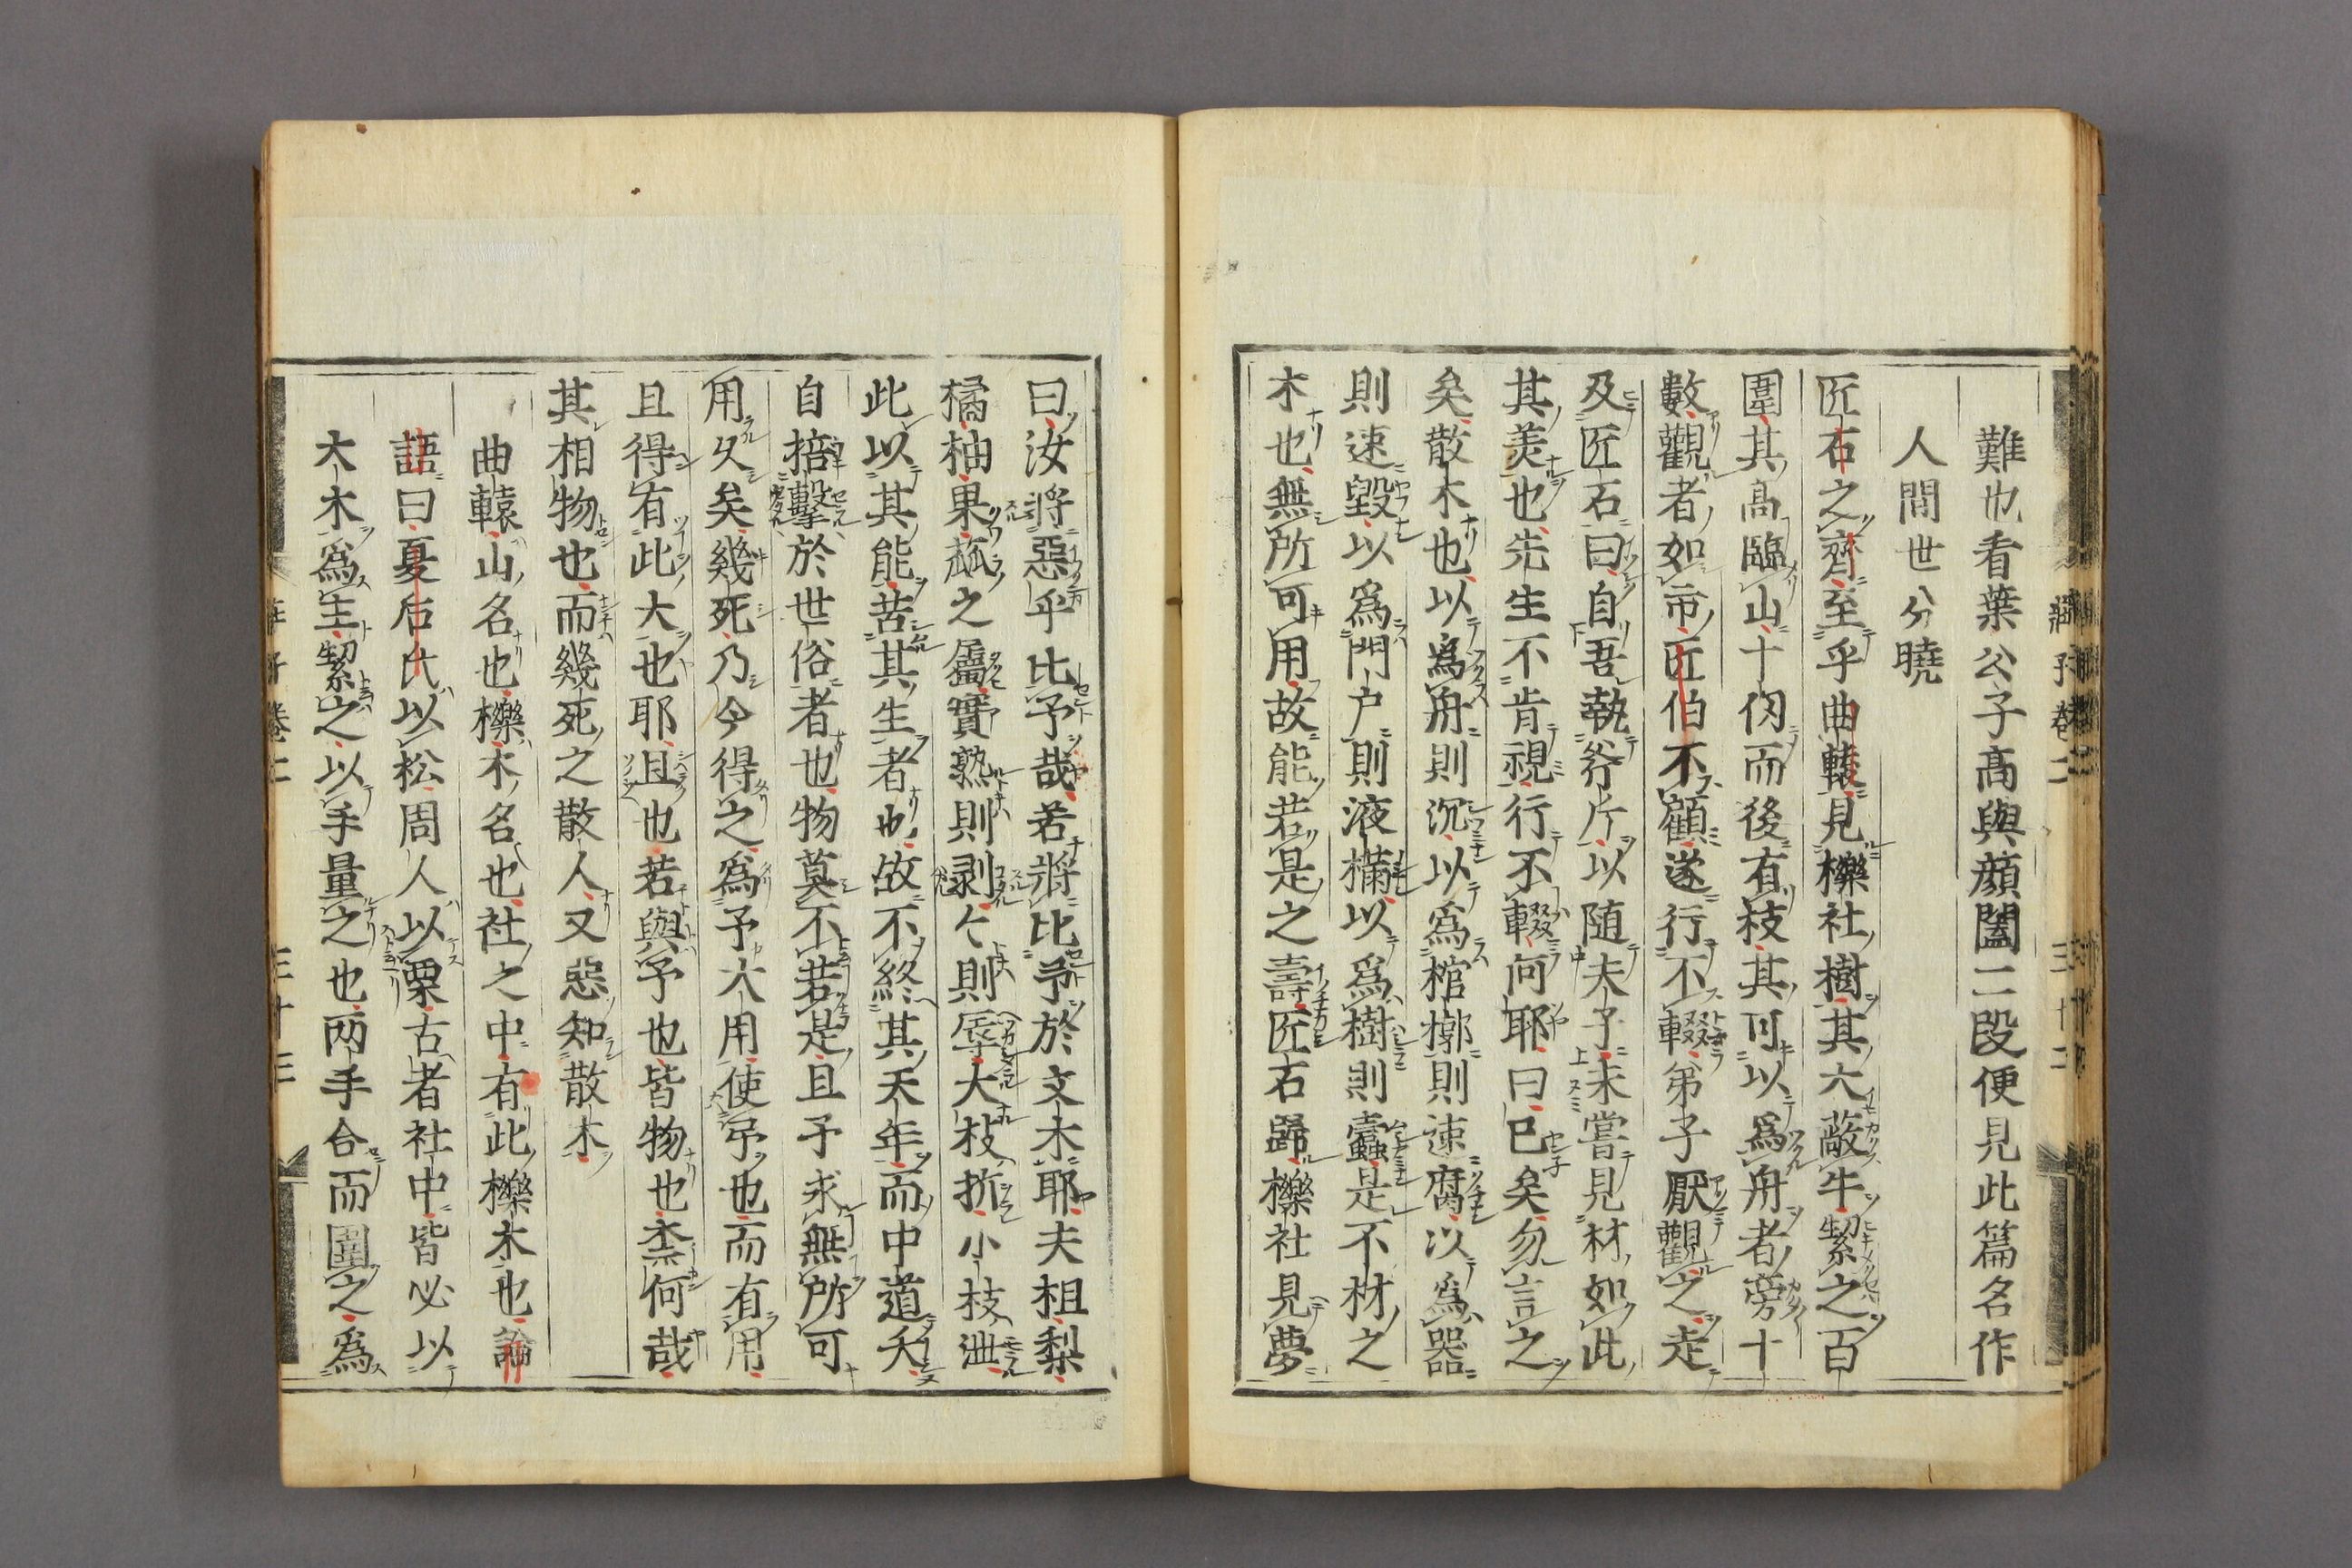 難也看葉公子高與顔闔二段便見此篇名作
人間世分曉
匠石之齊至乎曲轅見櫟社樹其大蔽牛絜之百
圍其高臨山十仞而後有枝其可以爲舟者旁十
數觀者如市匠伯不顧遂行不輟弟子厭觀之走
及匠石曰自吾執斧斤以随夫子未嘗見材如此
其羙也先生不肯視行不輟何耶曰已矣勿言之
矣散木也以爲舟則沉以爲棺槨則速腐以爲器
則速毀以爲門户則液樠以爲樹則蠹是不材之
木也無所可用故能若是之壽匠石歸櫟社見夢
曰汝將惡乎比予哉若將比予於文木耶夫柤梨
橘柚果蓏之屬實熟則剥〻則辱大枝折小枝泄
此以其能苦其生者也故不終其天年而中道夭
自掊擊於世俗者也物莫不若是且予求無所可
用久矣幾死乃今得之爲予大用使予也而有用
且得有此大也耶且也若與予也皆物也柰何哉
其相物也而幾死之散人又惡知散木
曲轅山名也櫟木名也社之中有此櫟木也論
語曰夏后氏以松周人以栗古者社中皆必以
大木爲主絜之以手量之也两手合而圍之爲
莊子卷二
三十二
莊子卷二
三十三